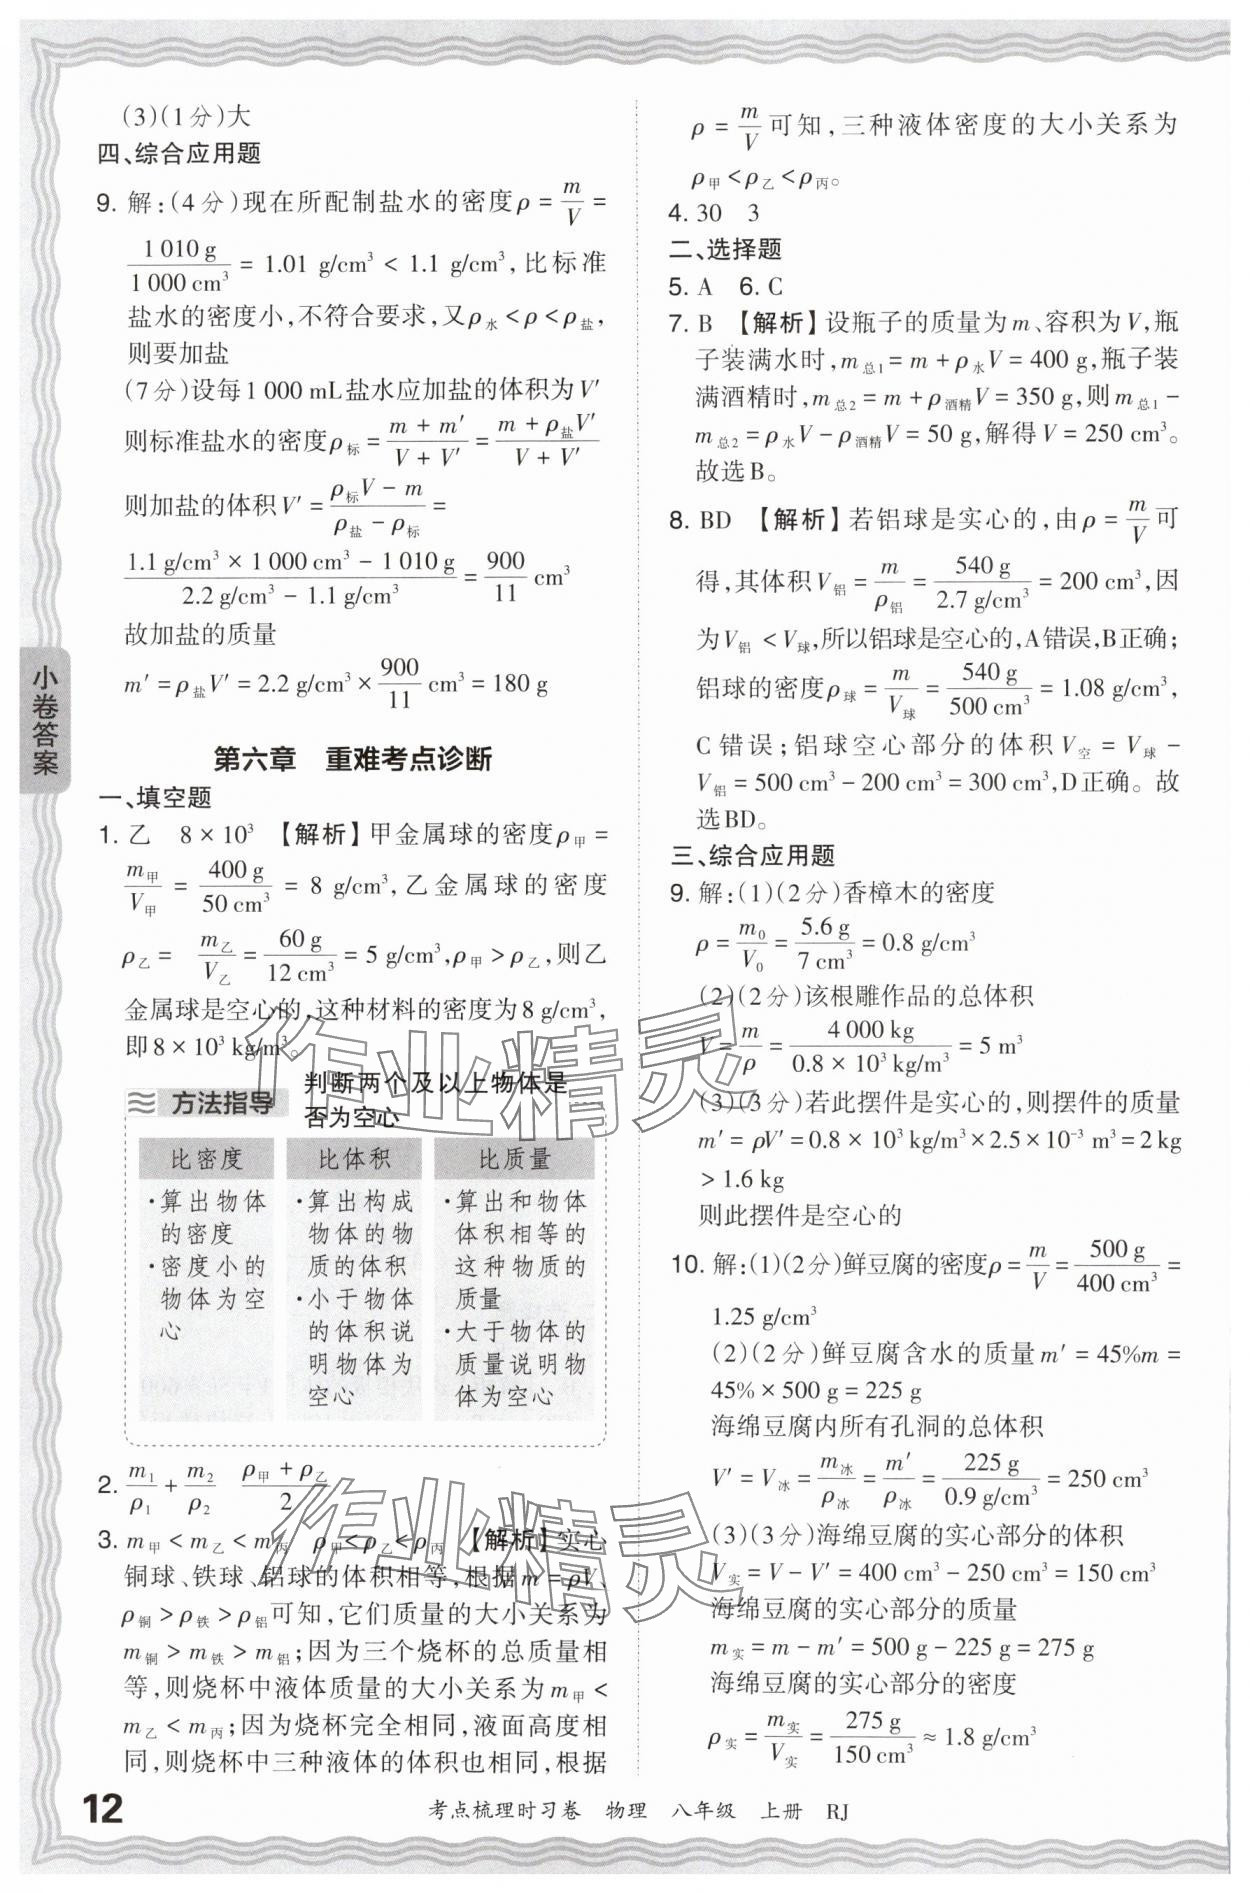 (3)(1分)大
四、综合应用题
9. 解:(4分)现在所配制盐水的密度ρ = m/V =
1 010 g/1 000 cm³ = 1.01 g/cm³ < 1.1 g/cm³,比标准
盐水的密度小,不符合要求,又ρ水 < ρ < ρ盐,
则要加盐
(7分)设每1 000 mL盐水应加盐的体积为V′
则标准盐水的密度ρ标 = (m + m′)/(V + V′) = (m + ρ盐V′)/(V + V′)
则加盐的体积V′ = (ρ标V − m)/(ρ盐 − ρ标) =
(1.1 g/cm³ × 1 000 cm³ − 1 010 g)/(2.2 g/cm³ − 1.1 g/cm³) = 900/11 cm³
故加盐的质量
m′ = ρ盐V′ = 2.2 g/cm³ × 900/11 cm³ = 180 g
第六章 重难考点诊断
一、填空题
1. 乙 8 × 10³ 【解析】甲金属球的密度ρ甲 =
m甲/V甲 = 400 g/50 cm³ = 8 g/cm³,乙金属球的密度
ρ乙 = m乙/V乙 = 60 g/12 cm³ = 5 g/cm³,ρ甲 > ρ乙,则乙
金属球是空心的,这种材料的密度为8 g/cm³,
即8 × 10³ kg/m³。
方法指导 判断两个及以上物体是
否为空心
比密度 比体积 比质量
·算出物体 ·算出构成 ·算出和物体
的密度 物体的物 体积相等的
·密度小的 质的体积 这种物质的
物体为空 ·小于物体 质量
心 的体积说 ·大于物体的
明物体为 质量说明物
空心 体为空心
2. m₁/ρ₁ + m₂/ρ₂ (ρ甲 + ρ乙)/2
3. m甲 < m乙 < m丙 ρ甲 < ρ乙 < ρ丙 【解析】实心
铜球、铁球、铝球的体积相等,根据m = ρV、
ρ铜 > ρ铁 > ρ铝可知,它们质量的大小关系为
m铜 > m铁 > m铝;因为三个烧杯的总质量相
等,则烧杯中液体质量的大小关系为m甲 <
m乙 < m丙;因为烧杯完全相同,液面高度相
同,则烧杯中三种液体的体积也相同,根据
ρ = m/V可知,三种液体密度的大小关系为
ρ甲 < ρ乙 < ρ丙。
4. 30 3
二、选择题
5. A 6. C
7. B 【解析】设瓶子的质量为m、容积为V,瓶
子装满水时,m总1 = m + ρ水V = 400 g,瓶子装
满酒精时,m总2 = m + ρ酒精V = 350 g,则m总1 −
m总2 = ρ水V − ρ酒精V = 50 g,解得V = 250 cm³。
故选B。
8. BD 【解析】若铝球是实心的,由ρ = m/V可
得,其体积V铝 = m/ρ铝 = 540 g/2.7 g/cm³ = 200 cm³,因
为V铝 < V球,所以铝球是空心的,A错误,B正确;
铝球的密度ρ球 = m/V球 = 540 g/500 cm³ = 1.08 g/cm³,
C错误;铝球空心部分的体积V空 = V球 −
V铝 = 500 cm³ − 200 cm³ = 300 cm³,D正确。故
选BD。
三、综合应用题
9. 解:(1)(2分)香樟木的密度
ρ = m₀/V₀ = 5.6 g/7 cm³ = 0.8 g/cm³
(2)(2分)该根雕作品的总体积
V = m/ρ = 4 000 kg/0.8 × 10³ kg/m³ = 5 m³
(3)(3分)若此摆件是实心的,则摆件的质量
m′ = ρV′ = 0.8 × 10³ kg/m³ × 2.5 × 10⁻³ m³ = 2 kg
> 1.6 kg
则此摆件是空心的
10. 解:(1)(2分)鲜豆腐的密度ρ = m/V = 500 g/400 cm³ =
1.25 g/cm³
(2)(2分)鲜豆腐含水的质量m′ = 45%m =
45% × 500 g = 225 g
海绵豆腐内所有孔洞的总体积
V′ = V冰 = m冰/ρ冰 = m′/ρ冰 = 225 g/0.9 g/cm³ = 250 cm³
(3)(3分)海绵豆腐的实心部分的体积
V实 = V − V′ = 400 cm³ − 250 cm³ = 150 cm³
海绵豆腐的实心部分的质量
m实 = m − m′ = 500 g − 225 g = 275 g
海绵豆腐的实心部分的密度
ρ实 = m实/V实 = 275 g/150 cm³ ≈ 1.8 g/cm³
小卷答案
作业精灵
作业精灵
12
考点梳理时习卷 物理 八年级 上册 RJ